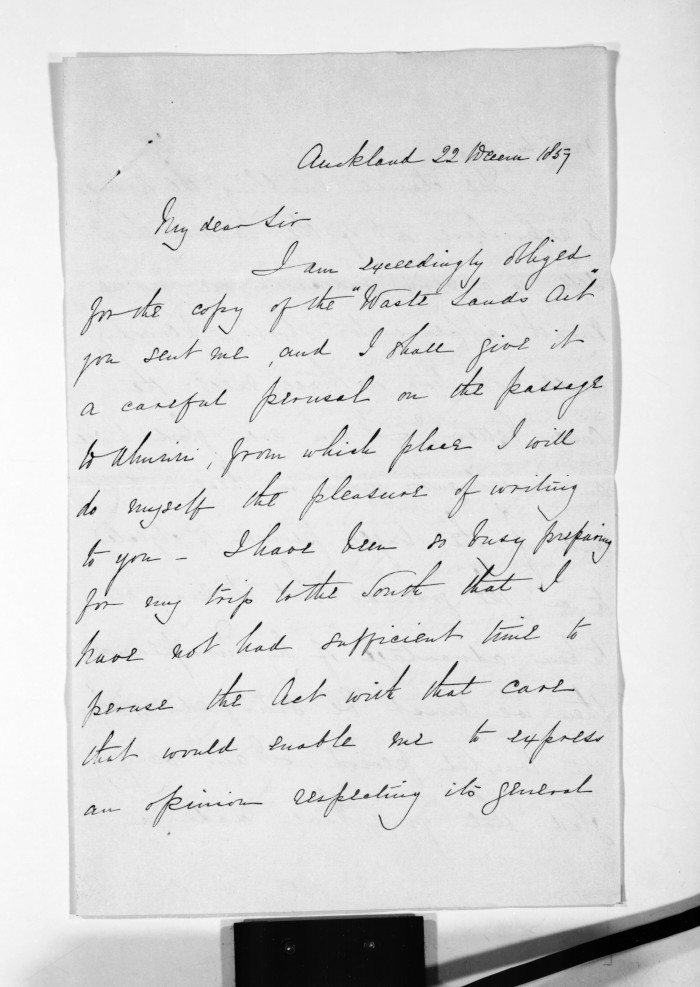 Auckland 22 Decem 1857
My dear Sir
I am exceedingly obliged
for the copy of the "Waste Lands Act"
you sent me, and I shall give it
a careful perusal on the passage
to Ahuriri, from which place I will
do myself the pleasure of writing
to you - I have been so busy preparing
for my trip to the South that I
have not had sufficient time to
peruse the Act with that care
that would enable me to express
an opinion respecting its general